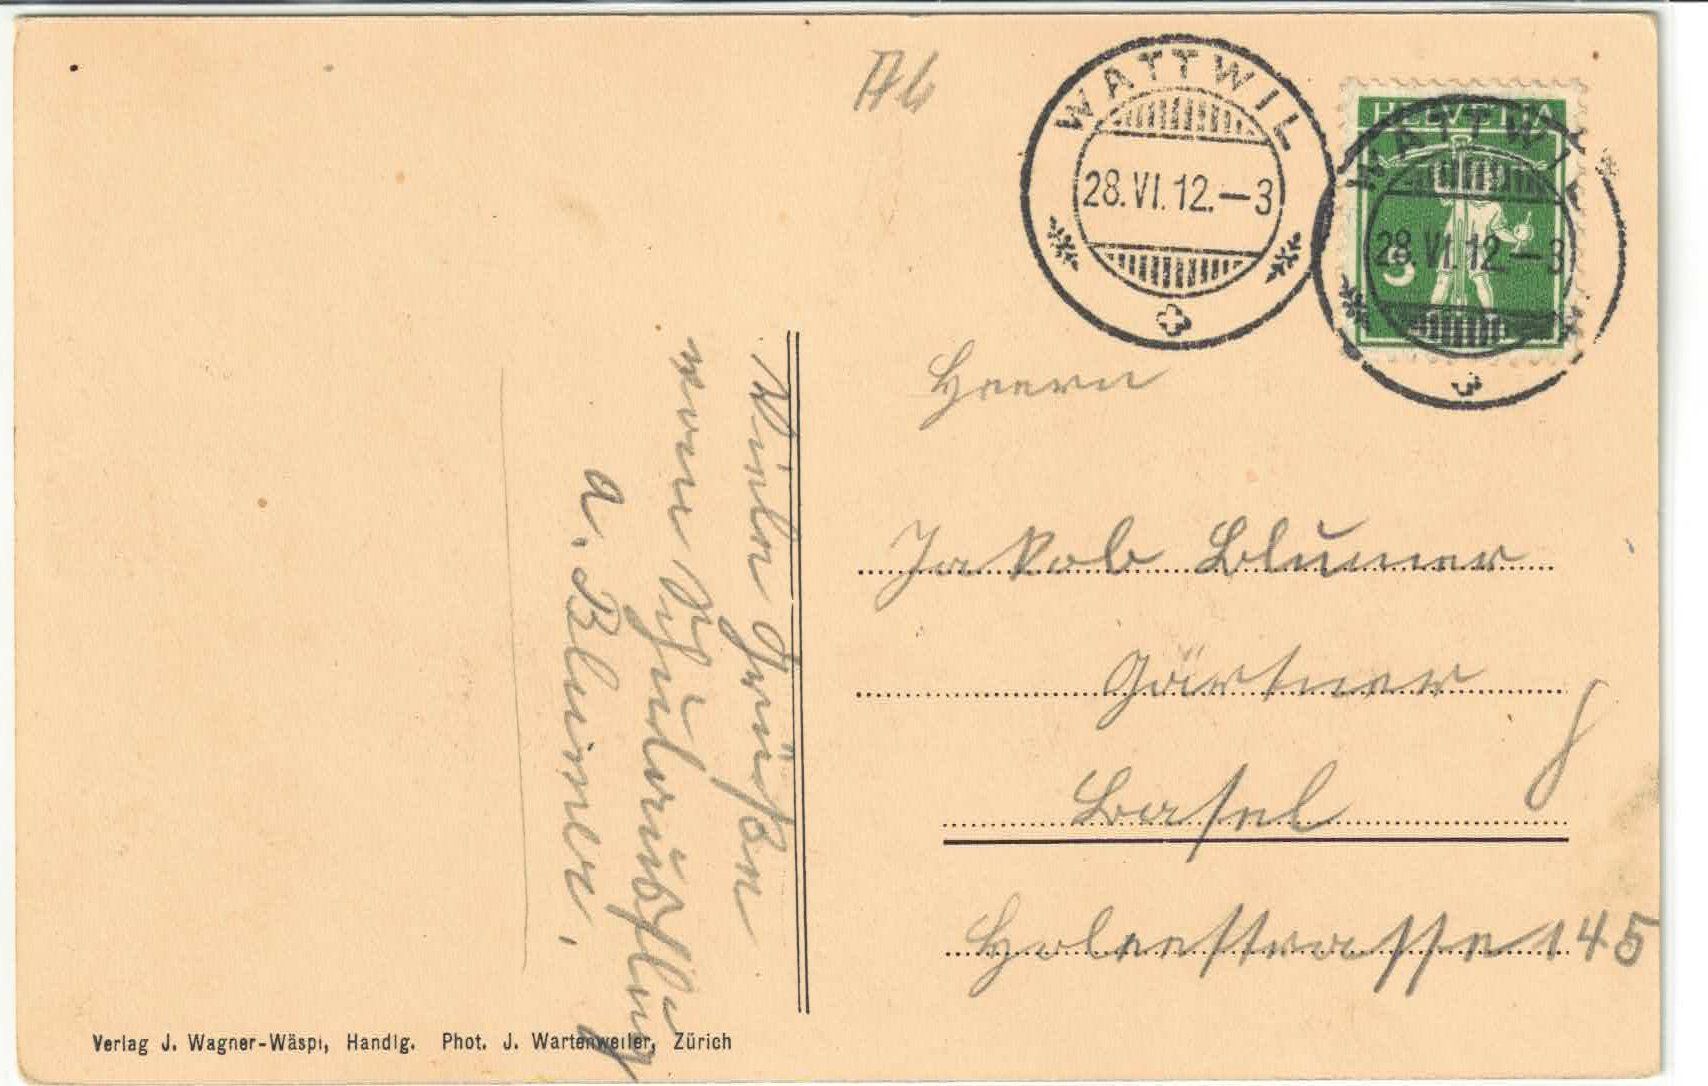 Ab
WATTWIL
28.VI.12.–3
HELVETIA
5
WATTWIL
28.VI.12.–3
Herrn
Jakob Blumer
Gärtner
Basel
Holeestrasse 145
Viele Grüßen
vom Schulausflug
A. Blumer.
Verlag J. Wagner-Wäspi, Handlg. Phot. J. Wartenweiler, Zürich